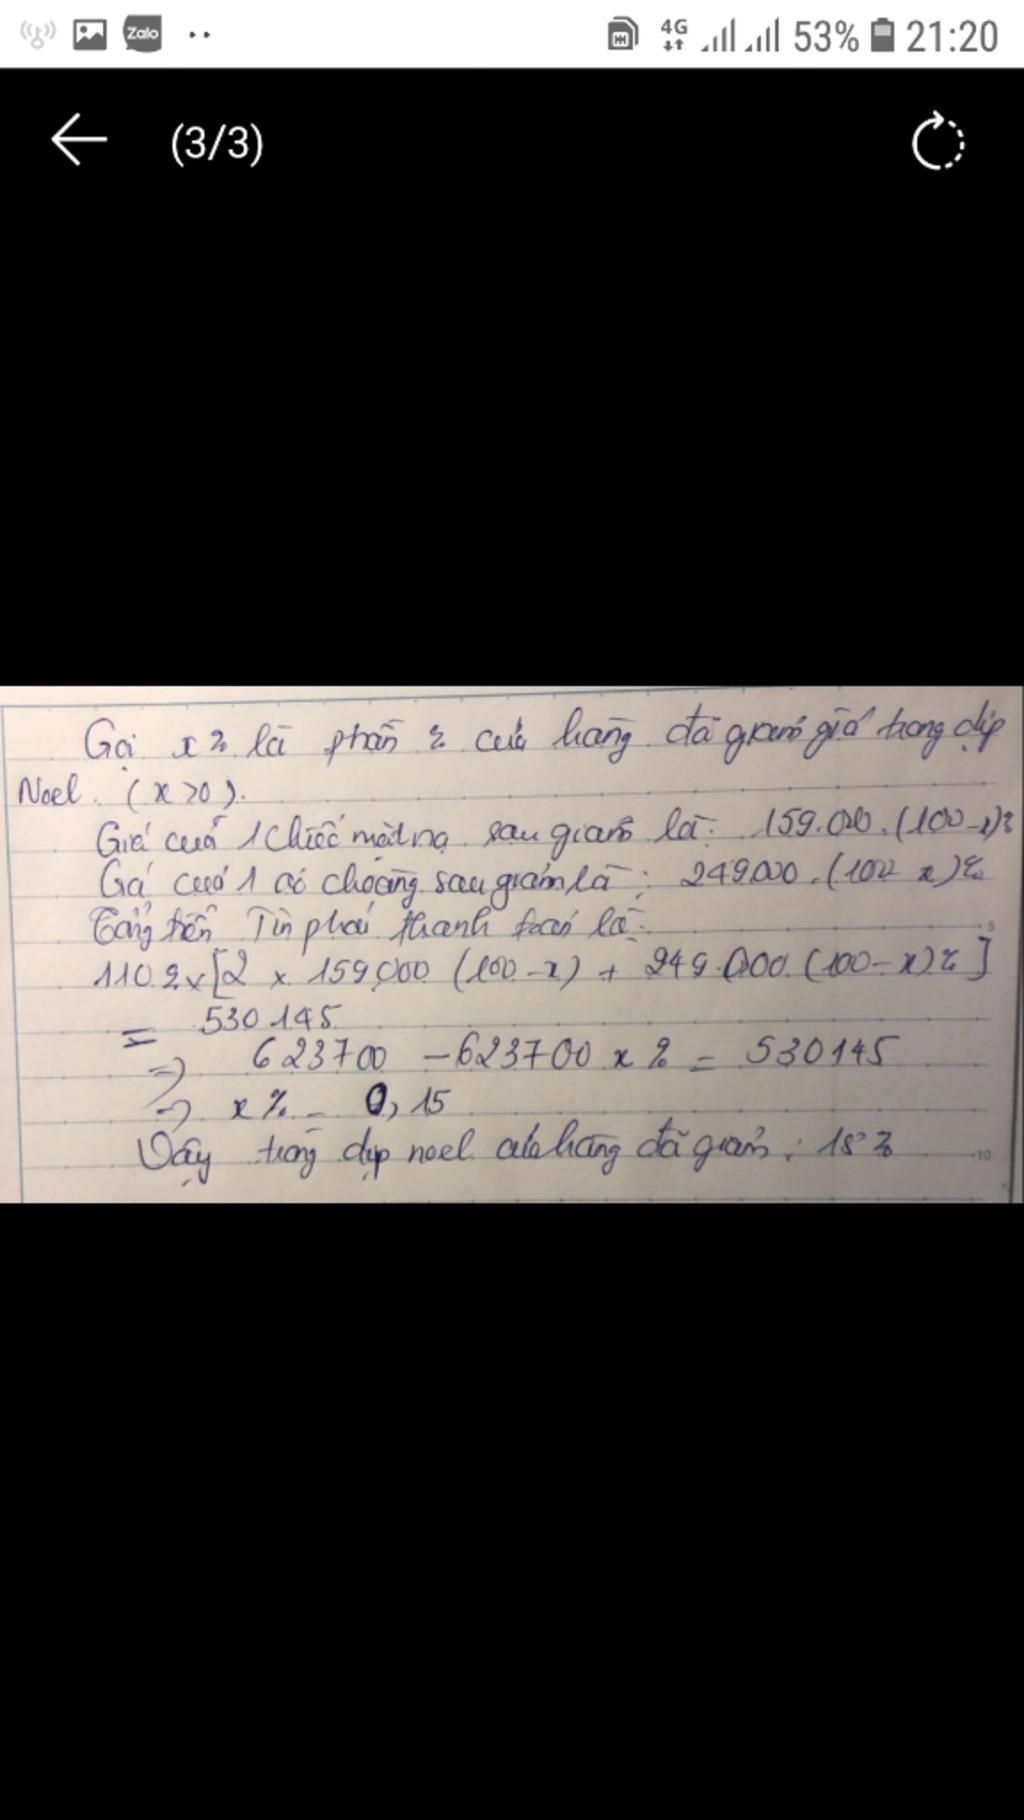 Zalo
4G 53% 21:20
(3/3)
Gọi x% là phần % cửa hàng đã giảm giá trong dịp
Noel. (x>0).
Giá của 1 chiếc mặt nạ sau giảm là: 159.000.(100-x)%
Giá của 1 áo choàng sau giảm là: 249.000.(100-x)%
Tổng tiền Tín phải thanh toán là:
110%x[2 x 159,000 (100-x) + 249.000.(100-x)%]
= 530145
=> 623700 -623700 x% = 530145
=> x% = 0,15
Vậy trong dịp noel cửa hàng đã giảm: 15%